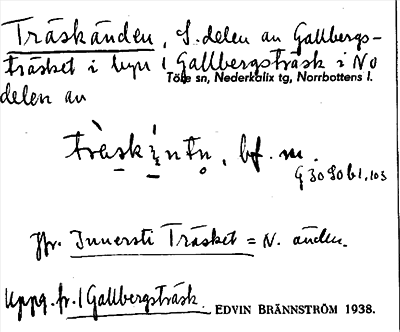 Träskänden, S. delen av Gallbergs-
träsket i byn i Gallbergsträsk i NO
Töre sn, Nederkalix tg, Norrbottens l.
delen av
bf. m.
G 3090 b 1, 103
Jfr. Innersti Träsket = N. änden.
Uppg. fr. / Gallbergsträsk. EDVIN BRÄNNSTRÖM 1938.